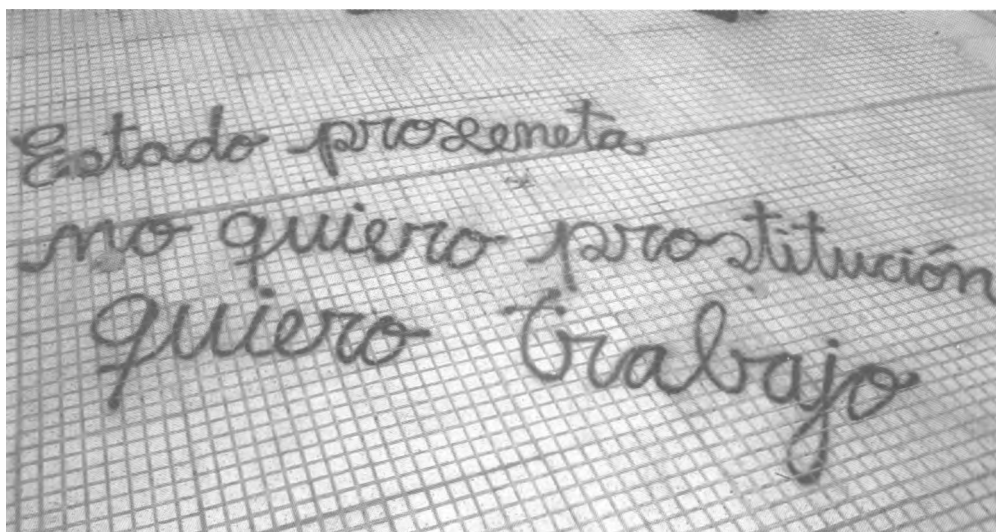 Estado proxeneta
no quiero prostitución
quiero trabajo